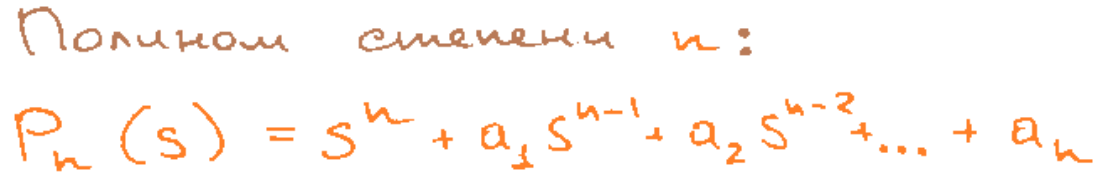 Полином степени n:
Pₙ (s) = sⁿ + a₁sⁿ⁻¹ + a₂sⁿ⁻² + ... + aₙ